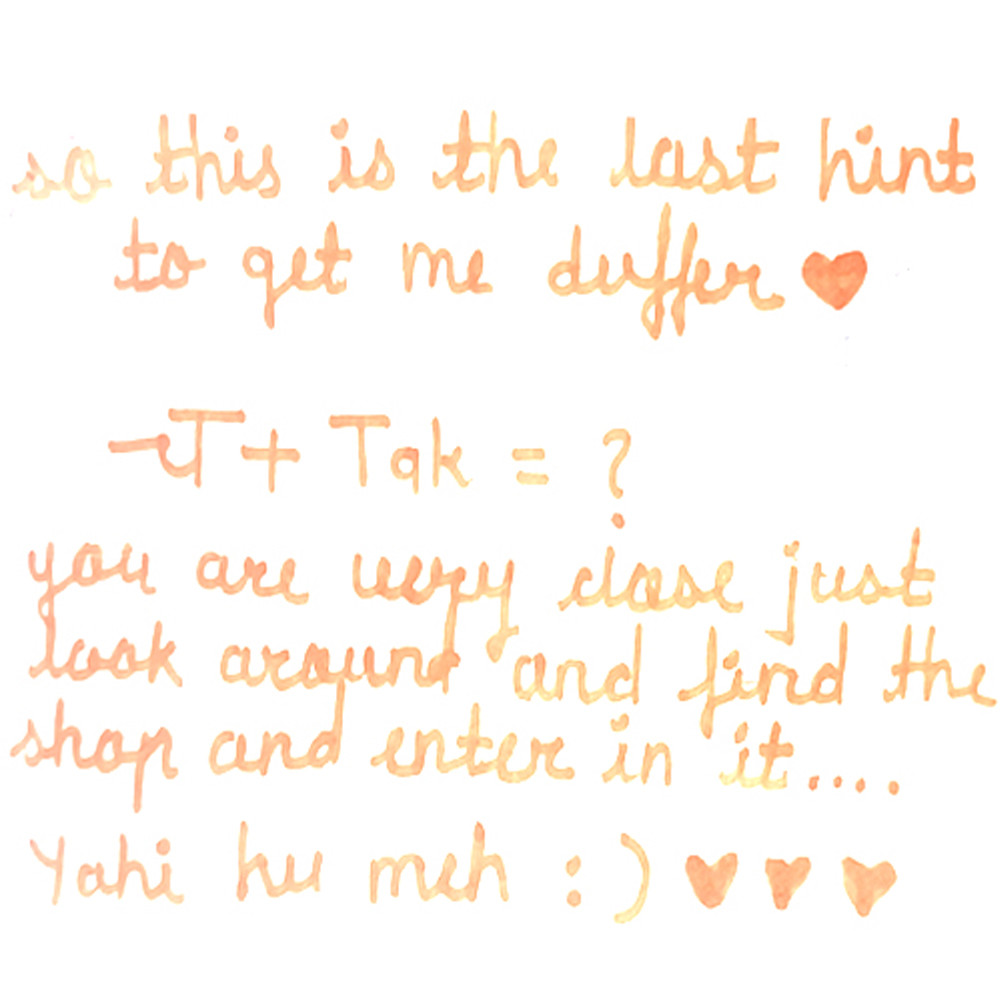 so this is the last hint
to get me duffer ♥
च + Tak = ?
you are very close just
look around and find the
shop and enter in it....
Yahi hu meh :) ♥ ♥ ♥